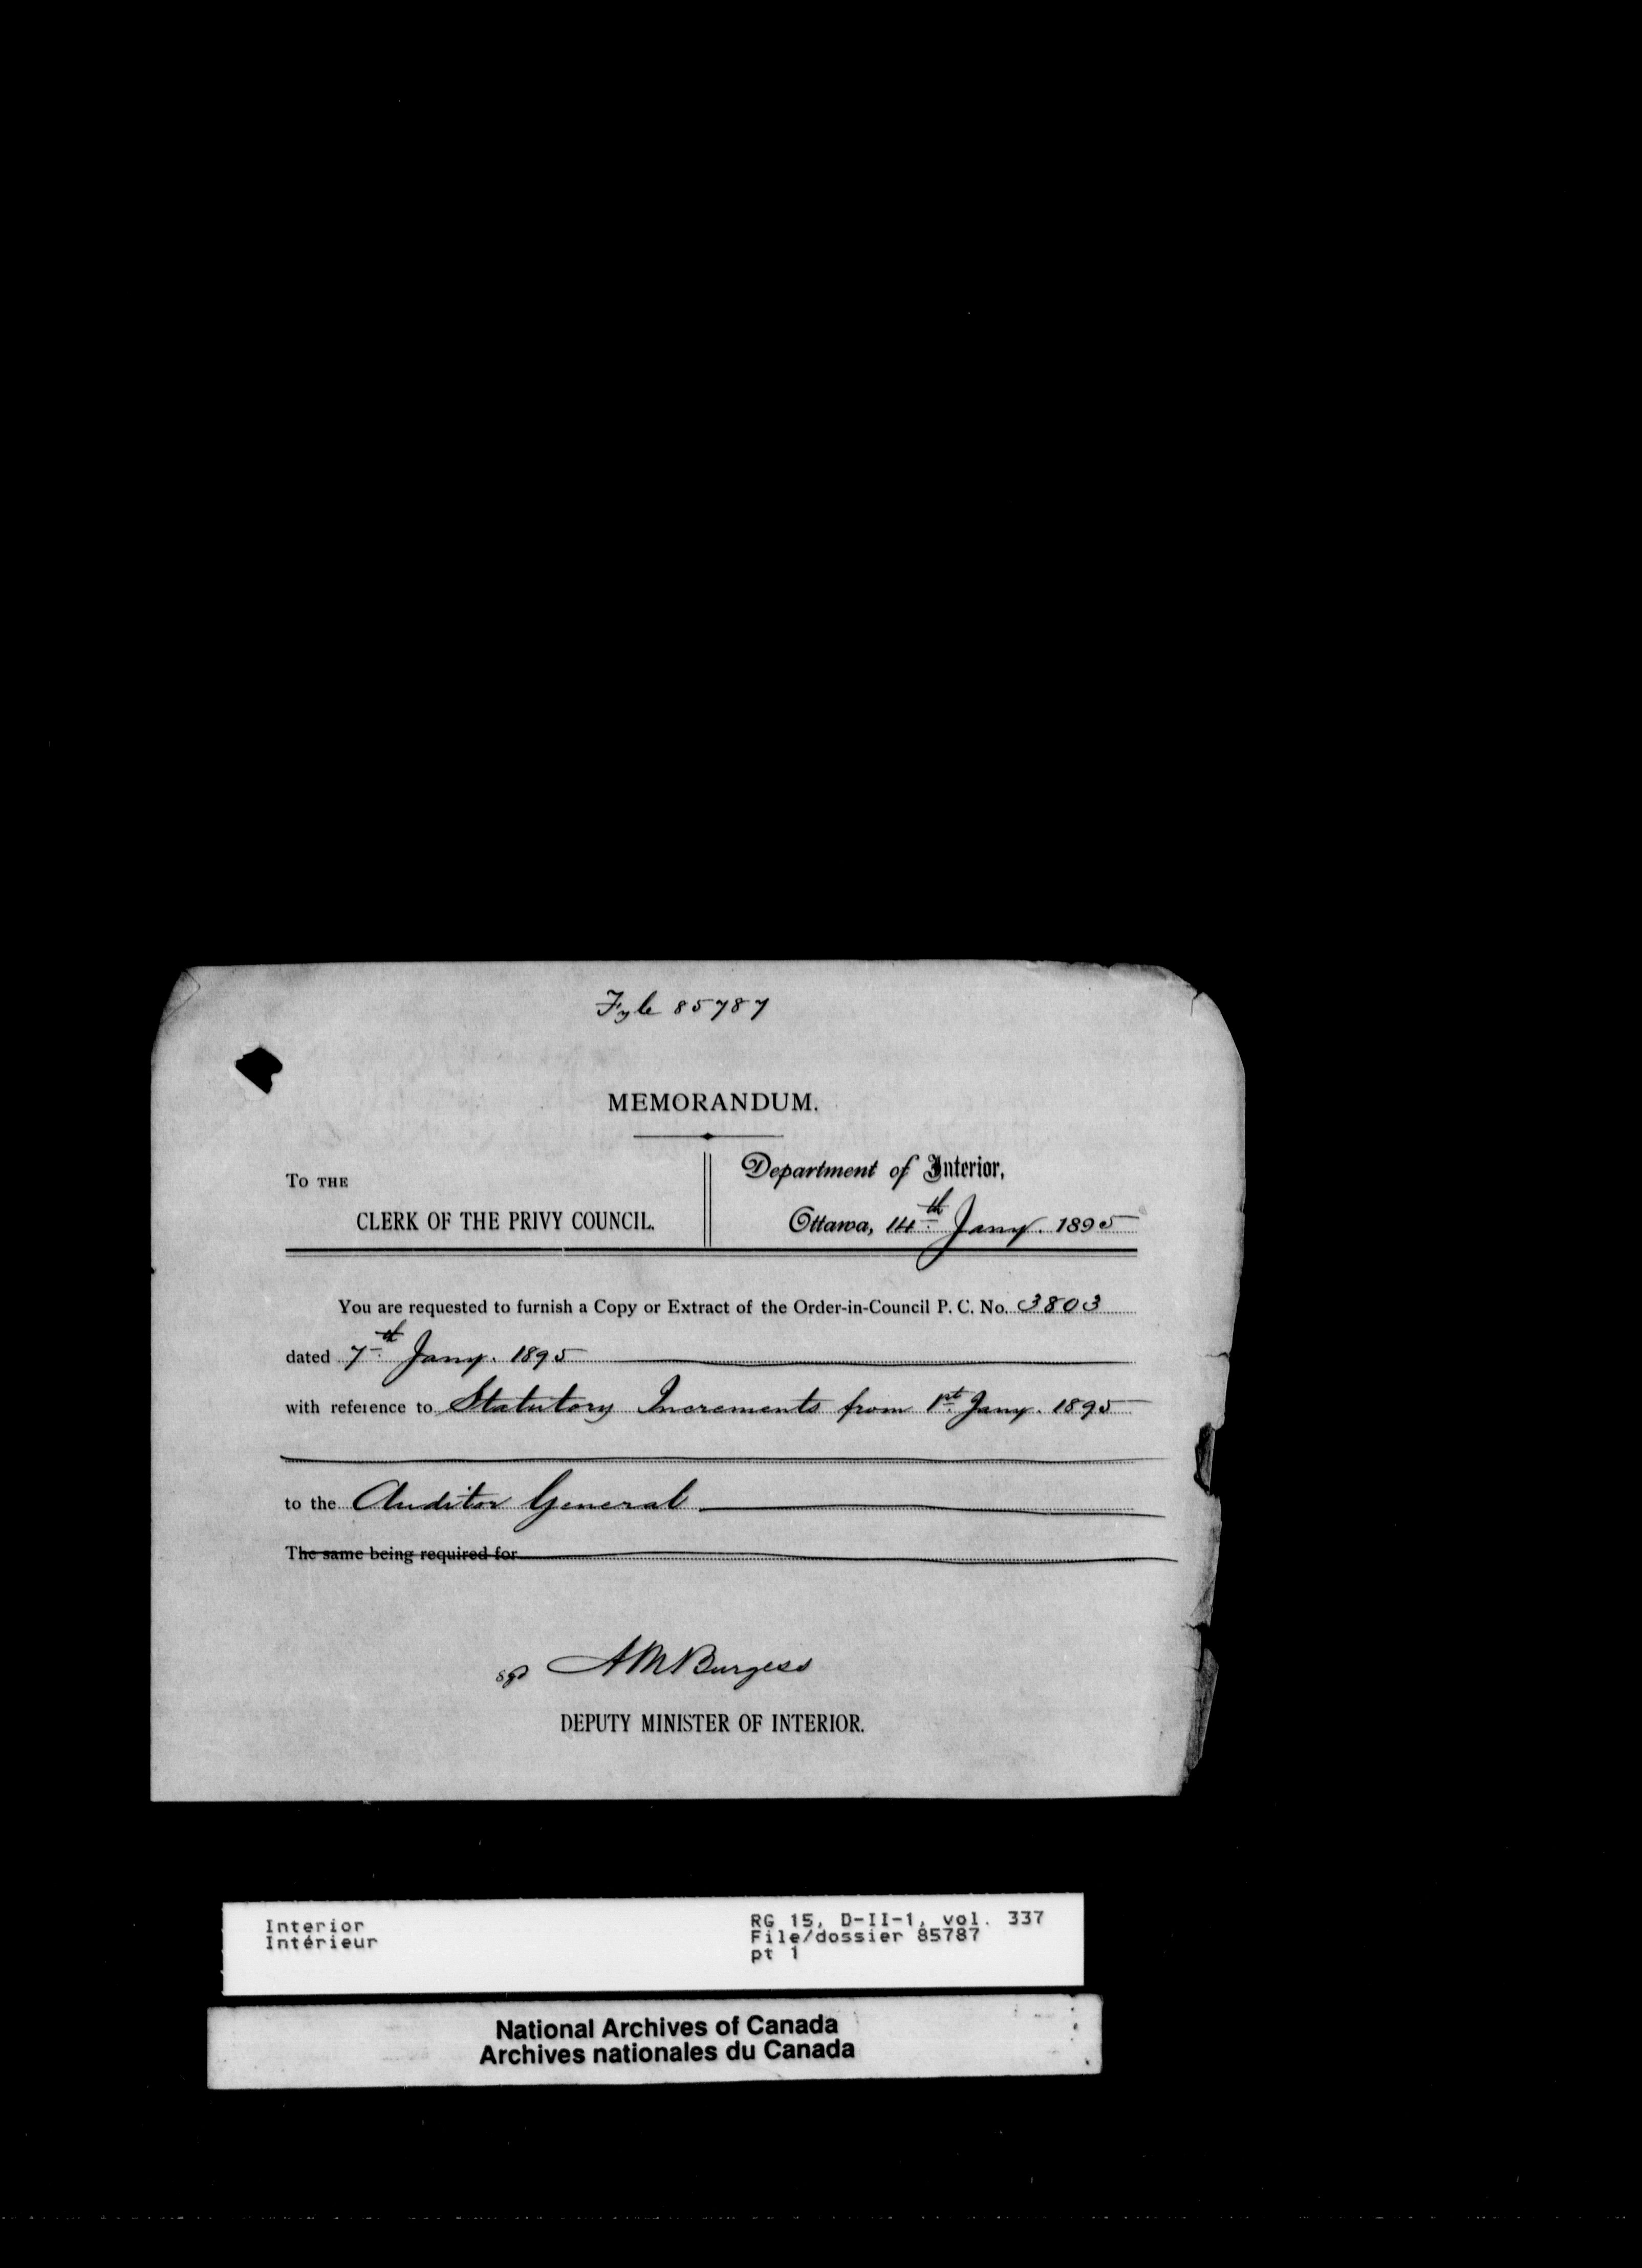 Fyle 85787
MEMORANDUM.
To the
CLERK OF THE PRIVY COUNCIL.
Department of Interior,
Ottawa, 14th Jany. 1895
You are requested to furnish a Copy or Extract of the Order-in-Council P. C. No. 3803
dated 7th Jany. 1895
with reference to Statutory Increments from 1st Jany. 1895
to the Auditor General
The same being required for
sgd A M Burgess
DEPUTY MINISTER OF INTERIOR.
Interior
Intérieur
RG 15, D-II-1, vol. 337
File/dossier 85787
pt 1
National Archives of Canada
Archives nationales du Canada